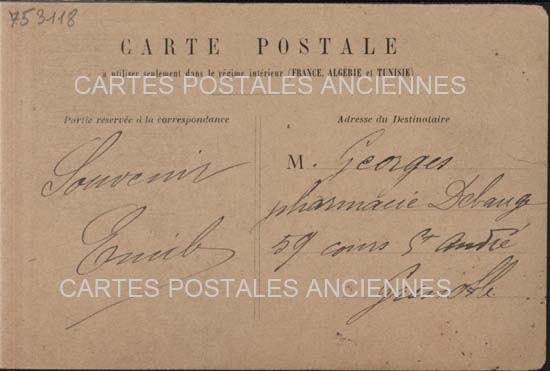 753118
CARTE POSTALE
à utiliser seulement dans le régime intérieur (FRANCE, ALGÉRIE et TUNISIE)
CARTES POSTALES ANCIENNES
Partie réservée à la correspondance
Adresse du Destinataire
Souvenir
Emile
M. Georges
pharmacie Debaug
59 cours St André
Grenoble
CARTES POSTALES ANCIENNES